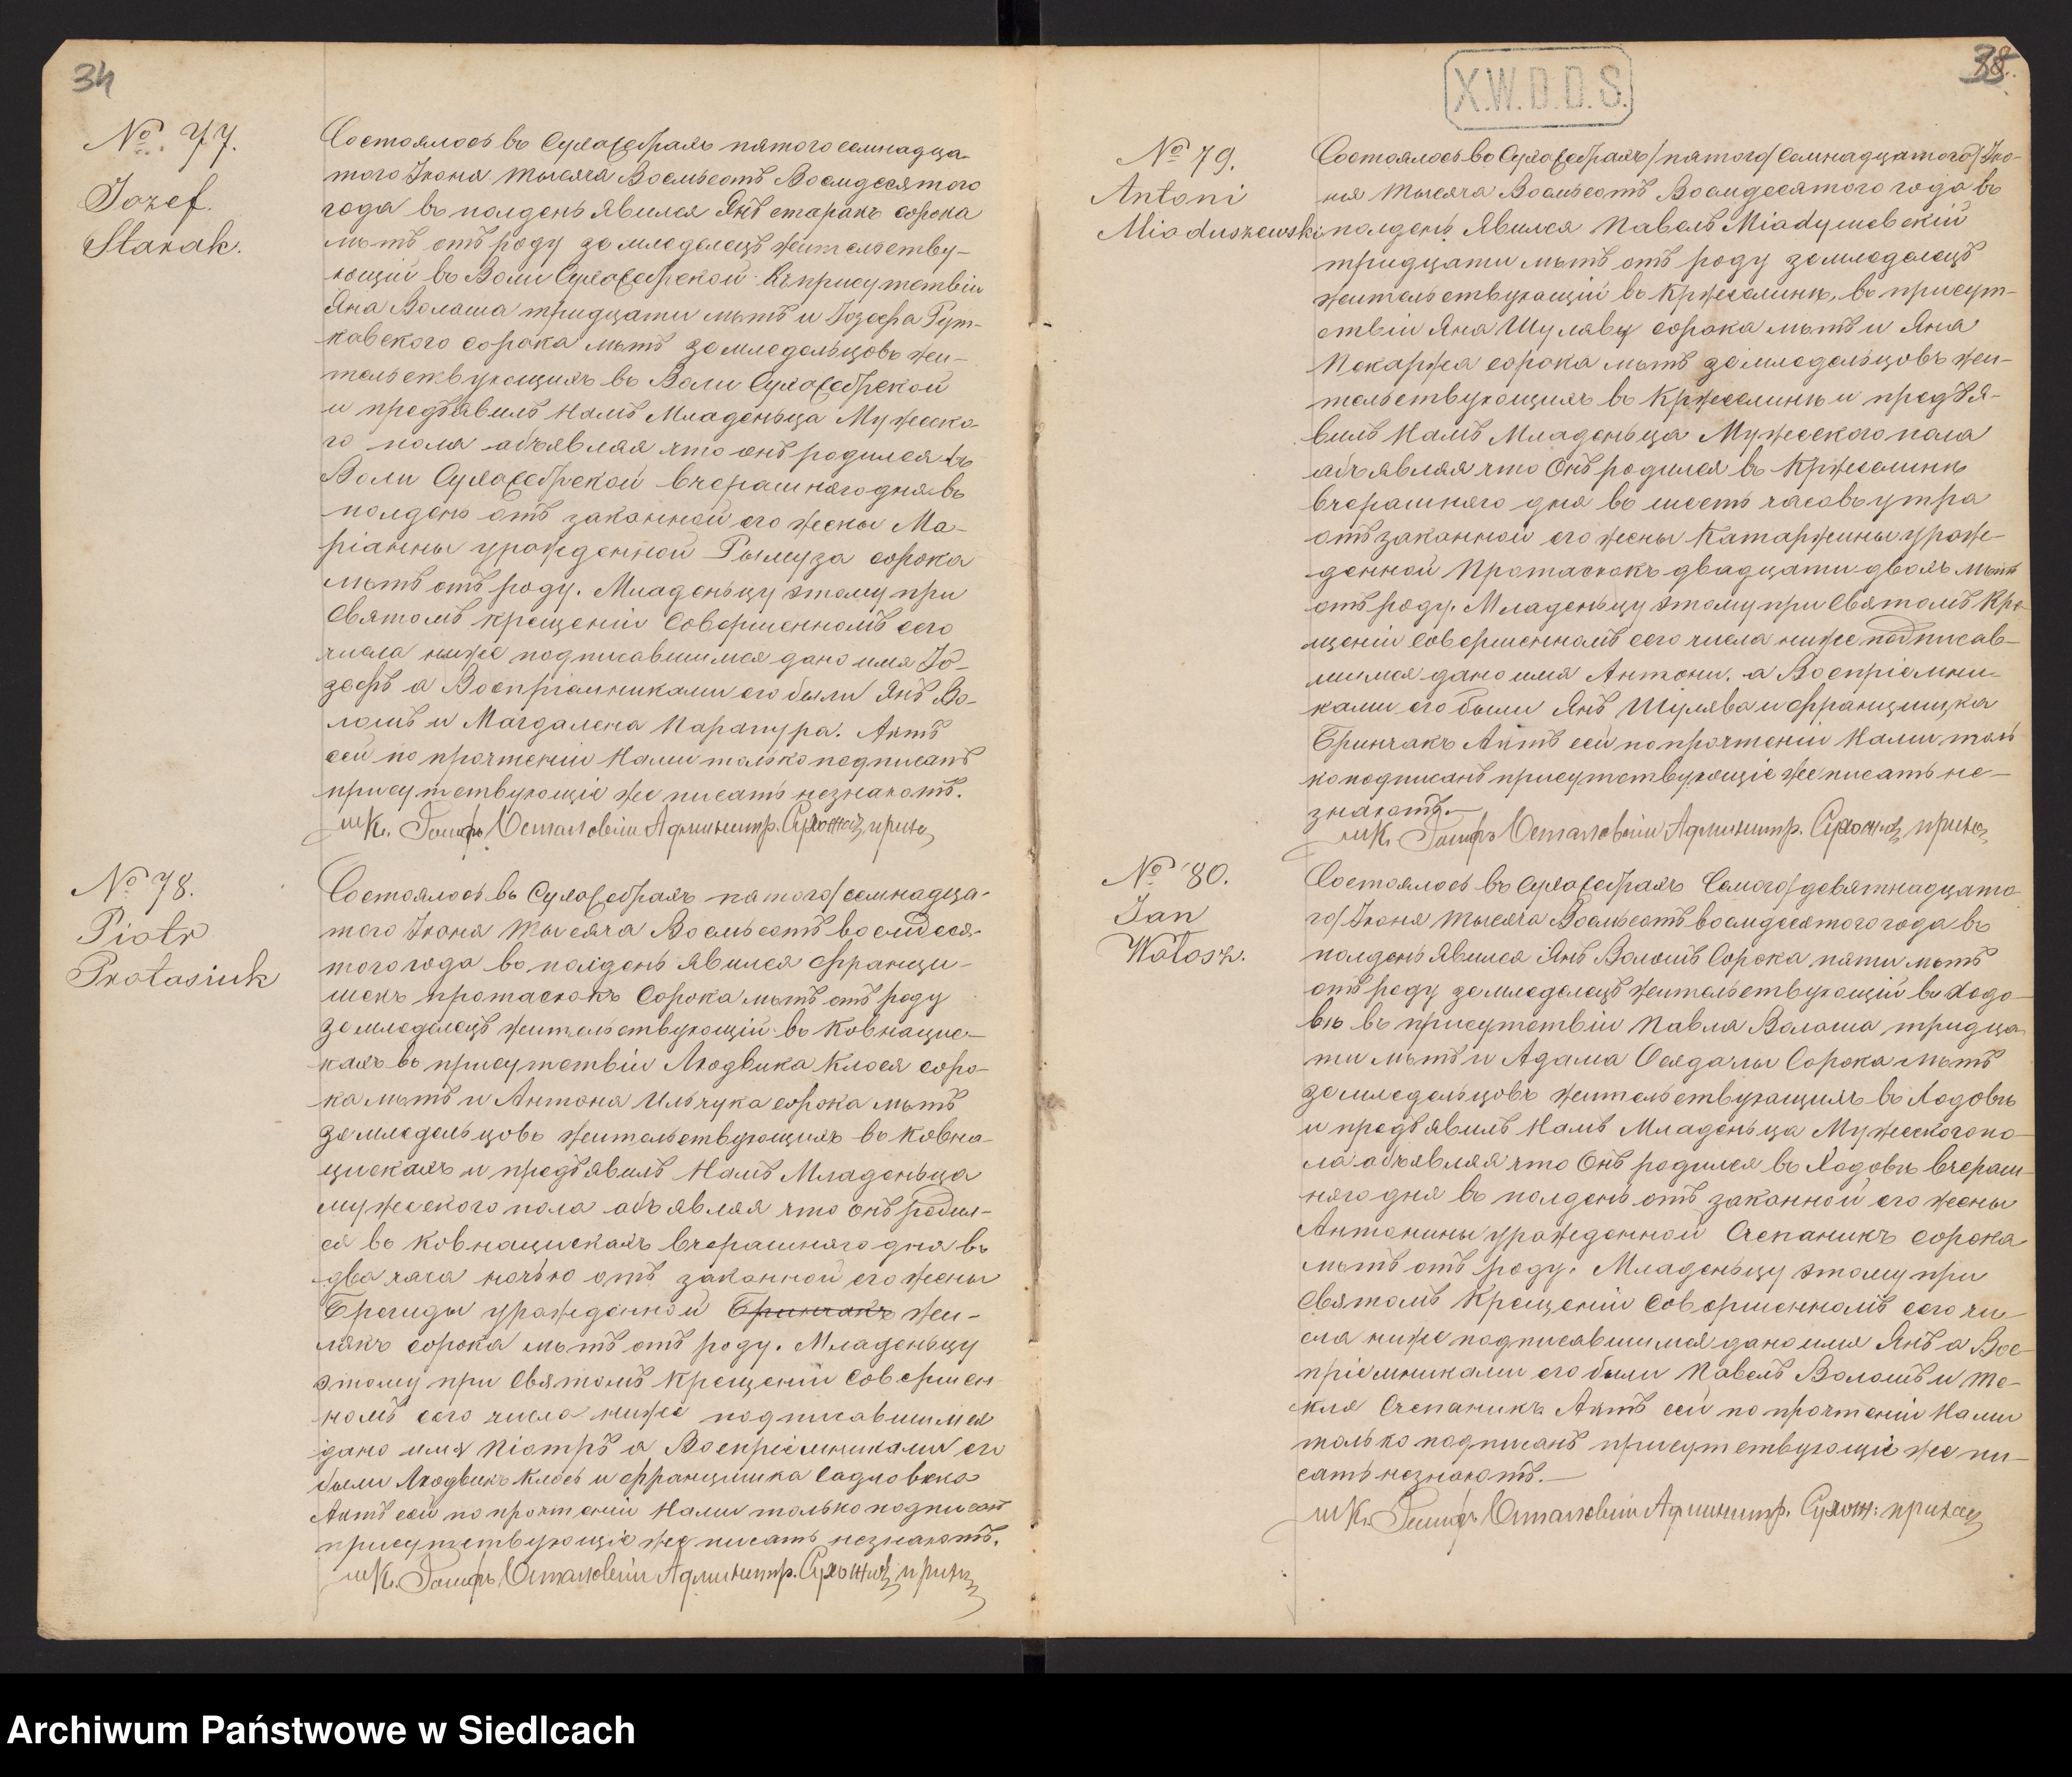 34
№ 77.
Jozef
Starak.
Состоялось въ Сухожебрахъ пятого семнадца-
того Іюня тысяча Восемьсотъ Восмдесятого
года въ полдень явился Янъ старакъ сорока
лѣтъ отъ роду земледелецъ жительству-
ющій въ Воли Сухожебрской въ присутствіи
Яна Волоша тридцати лѣтъ и Іозефа Рут-
ковского сорока лѣтъ земледельцовъ жи-
тельствующихъ въ Воли Сухожебрской
и предъявилъ Намъ Младеньца Мужеско-
го пола объявляя что онъ родился въ
Воли Сухожебрской вчерашняго дня въ
полдень отъ законной его жены Ма-
ріанны урожденной Рымуза сорока
лѣтъ отъ роду. Младеньцу этому при
Святомъ крещеніи Совершенномъ сего
числа ниже подписавшимся дано имя Іо-
зефъ а Воспріемниками его были Янъ Во-
лошъ и Магдалена Парапура. Актъ
сей по прочтеніи Нами только подписанъ
присутствующіе же писать незнаютъ.
№ 78.
Piotr
Protasiuk
Состоялось въ Сухожебрахъ пятого/семнадца-
того Іюня тысяча Восемьсотъ восмдеся-
того года въ полдень явился Франци-
шекъ протасюкъ Сорока лѣтъ отъ роду
земледелецъ жительствующій въ Ковнацис-
кахъ въ присутствіи Людвика Клося соро-
ка лѣтъ и Антона Ильчука сорока лѣтъ
земледельцовъ жительствующихъ въ Ковна-
цискахъ и предъявилъ Намъ Младеньца
мужеского пола объявляя что онъ родил-
ся въ Ковнацискахъ вчерашняго дня въ
два часа ночью отъ законной его жены
Бригиды урожденной Бринчакъ Жи-
лякъ сорока лѣтъ отъ роду. Младеньцу
этому при Святомъ Крещеніи Совершен-
номъ сего числа ниже подписавшимся
дано имя Піотръ а Воспріемниками его
были Людвикъ Клось и францишка Садловска
Актъ сей по прочтеніи Нами только подписанъ
присутствующіе же писать незнаютъ.
X.W.D.D.S.
35
№ 79.
Antoni
Miaduszewski
Состоялось въ Сухожебрахъ/пятого/Семнадцатого/Ію-
ня тысяча Восемьсотъ Восмдесятого года въ
полдень Явился Павелъ Міадушевскій
тридцати лѣтъ отъ роду земледелецъ
жительствующій въ Кржеслинѣ, въ присут-
ствіи Яна Шулявы сорока лѣтъ и Яна
Пекаржа сорока лѣтъ земледельцовъ жи-
тельствующихъ въ Кржеслинѣ и предъя-
вилъ Намъ Младеньца Мужеского пола
объявляя что Онъ родился въ Кржеслинѣ
вчерашняго дня въ шесть часовъ утра
отъ законной его жены Катаржины урож-
денной Протасюкъ двадцати двохъ лѣтъ
отъ роду. Младеньцу этому при Святомъ Кре-
щеніи Совершенномъ сего числа ниже подписав-
шимся дано имя Антони. а Воспріемни-
ками его были Янъ Шулява и францишка
Бринчакъ Актъ сей по прочтеніи Нами толь
ко подписанъ присутствующіе же писать не-
знаютъ.
№ 80.
Jan
Wołosz.
Состоялось въ Сухожебрахъ Семого/девятнадцато
го/Іюня тысяча Восемьсотъ восмдесятого года въ
полдень явился Янъ Волошъ Сорока пяти лѣтъ
отъ роду земледелецъ жительствующій въ Ходо-
вѣ въ присутствіи Павла Волоша тридца
ти лѣтъ и Адама Осядачы Сорока лѣтъ
земледельцовъ жительствующихъ въ Ходовѣ
и предъявилъ Намъ Младеньца Мужеского по-
ла объявляя что Онъ родился въ Ходовѣ вчераш-
няго дня въ полдень отъ законной его жены
Антонины урожденной Счепаникъ сорока
лѣтъ отъ роду. Младеньцу этому при
Святомъ Крещеніи Совершенномъ сего чи-
сла ниже подписавшимся дано имя Янъ а Вос-
пріемниками его были Павелъ Волошъ и Те-
кля Счепаникъ Актъ сей по прочтеніи Нами
только подписанъ присутствующіе же пи-
сать незнаютъ.
Archiwum Państwowe w Siedlcach